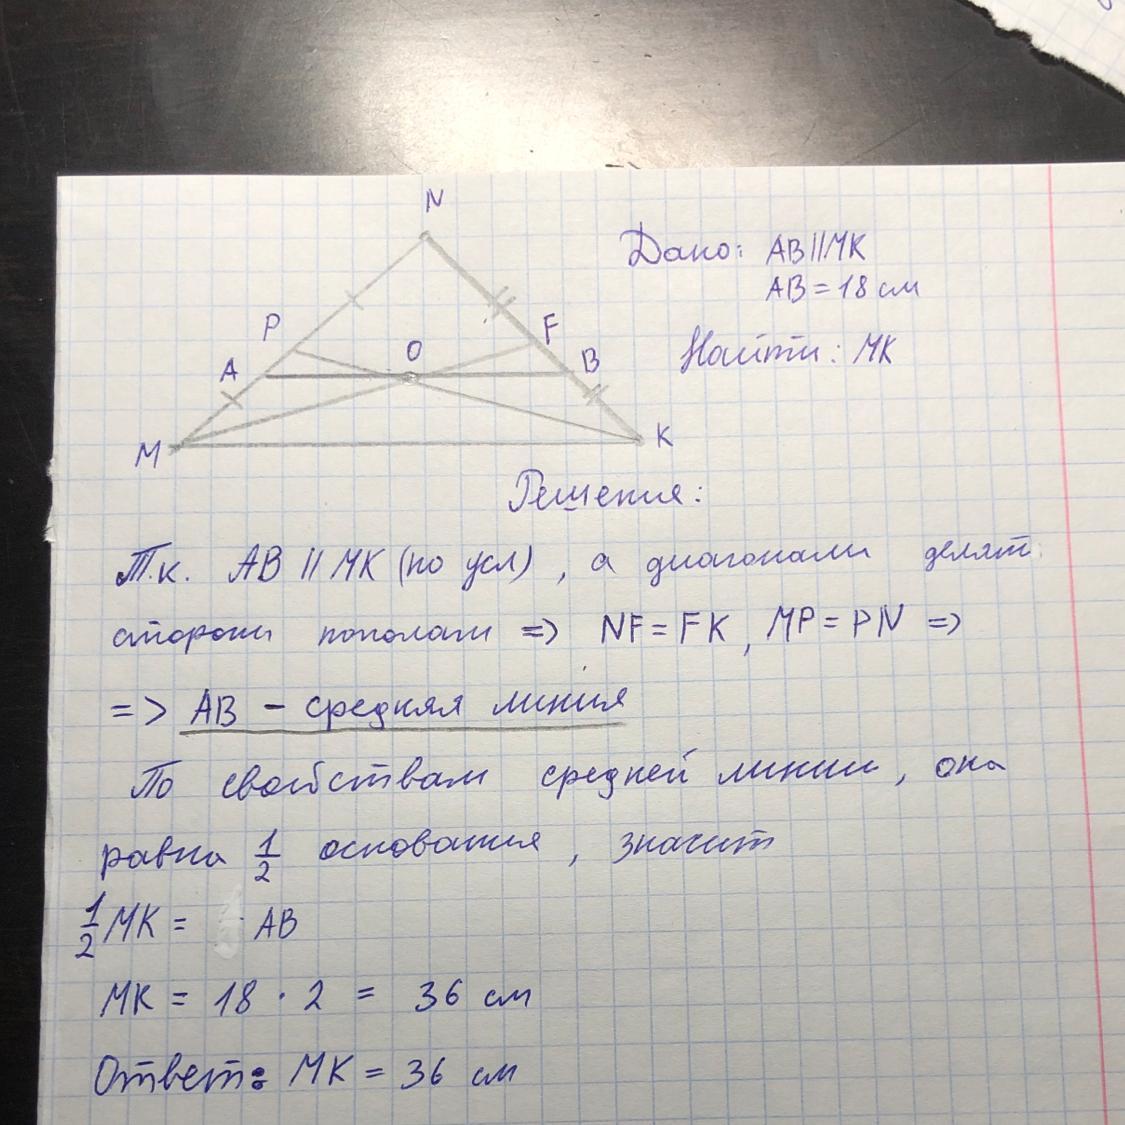 N
Дано: AB || MK
AB = 18 см
P
F
O
A
B
Найти: MK
M
K
Решения:
Т.к. AB || MK (по усл), а диагонали делят
стороны пополам => NF = FK, MP = PN =>
=> AB - средняя линия
По свойствам средней линии, она
равна 1/2 основания, значит
1/2 MK = AB
MK = 18 · 2 = 36 см
Ответ: MK = 36 см